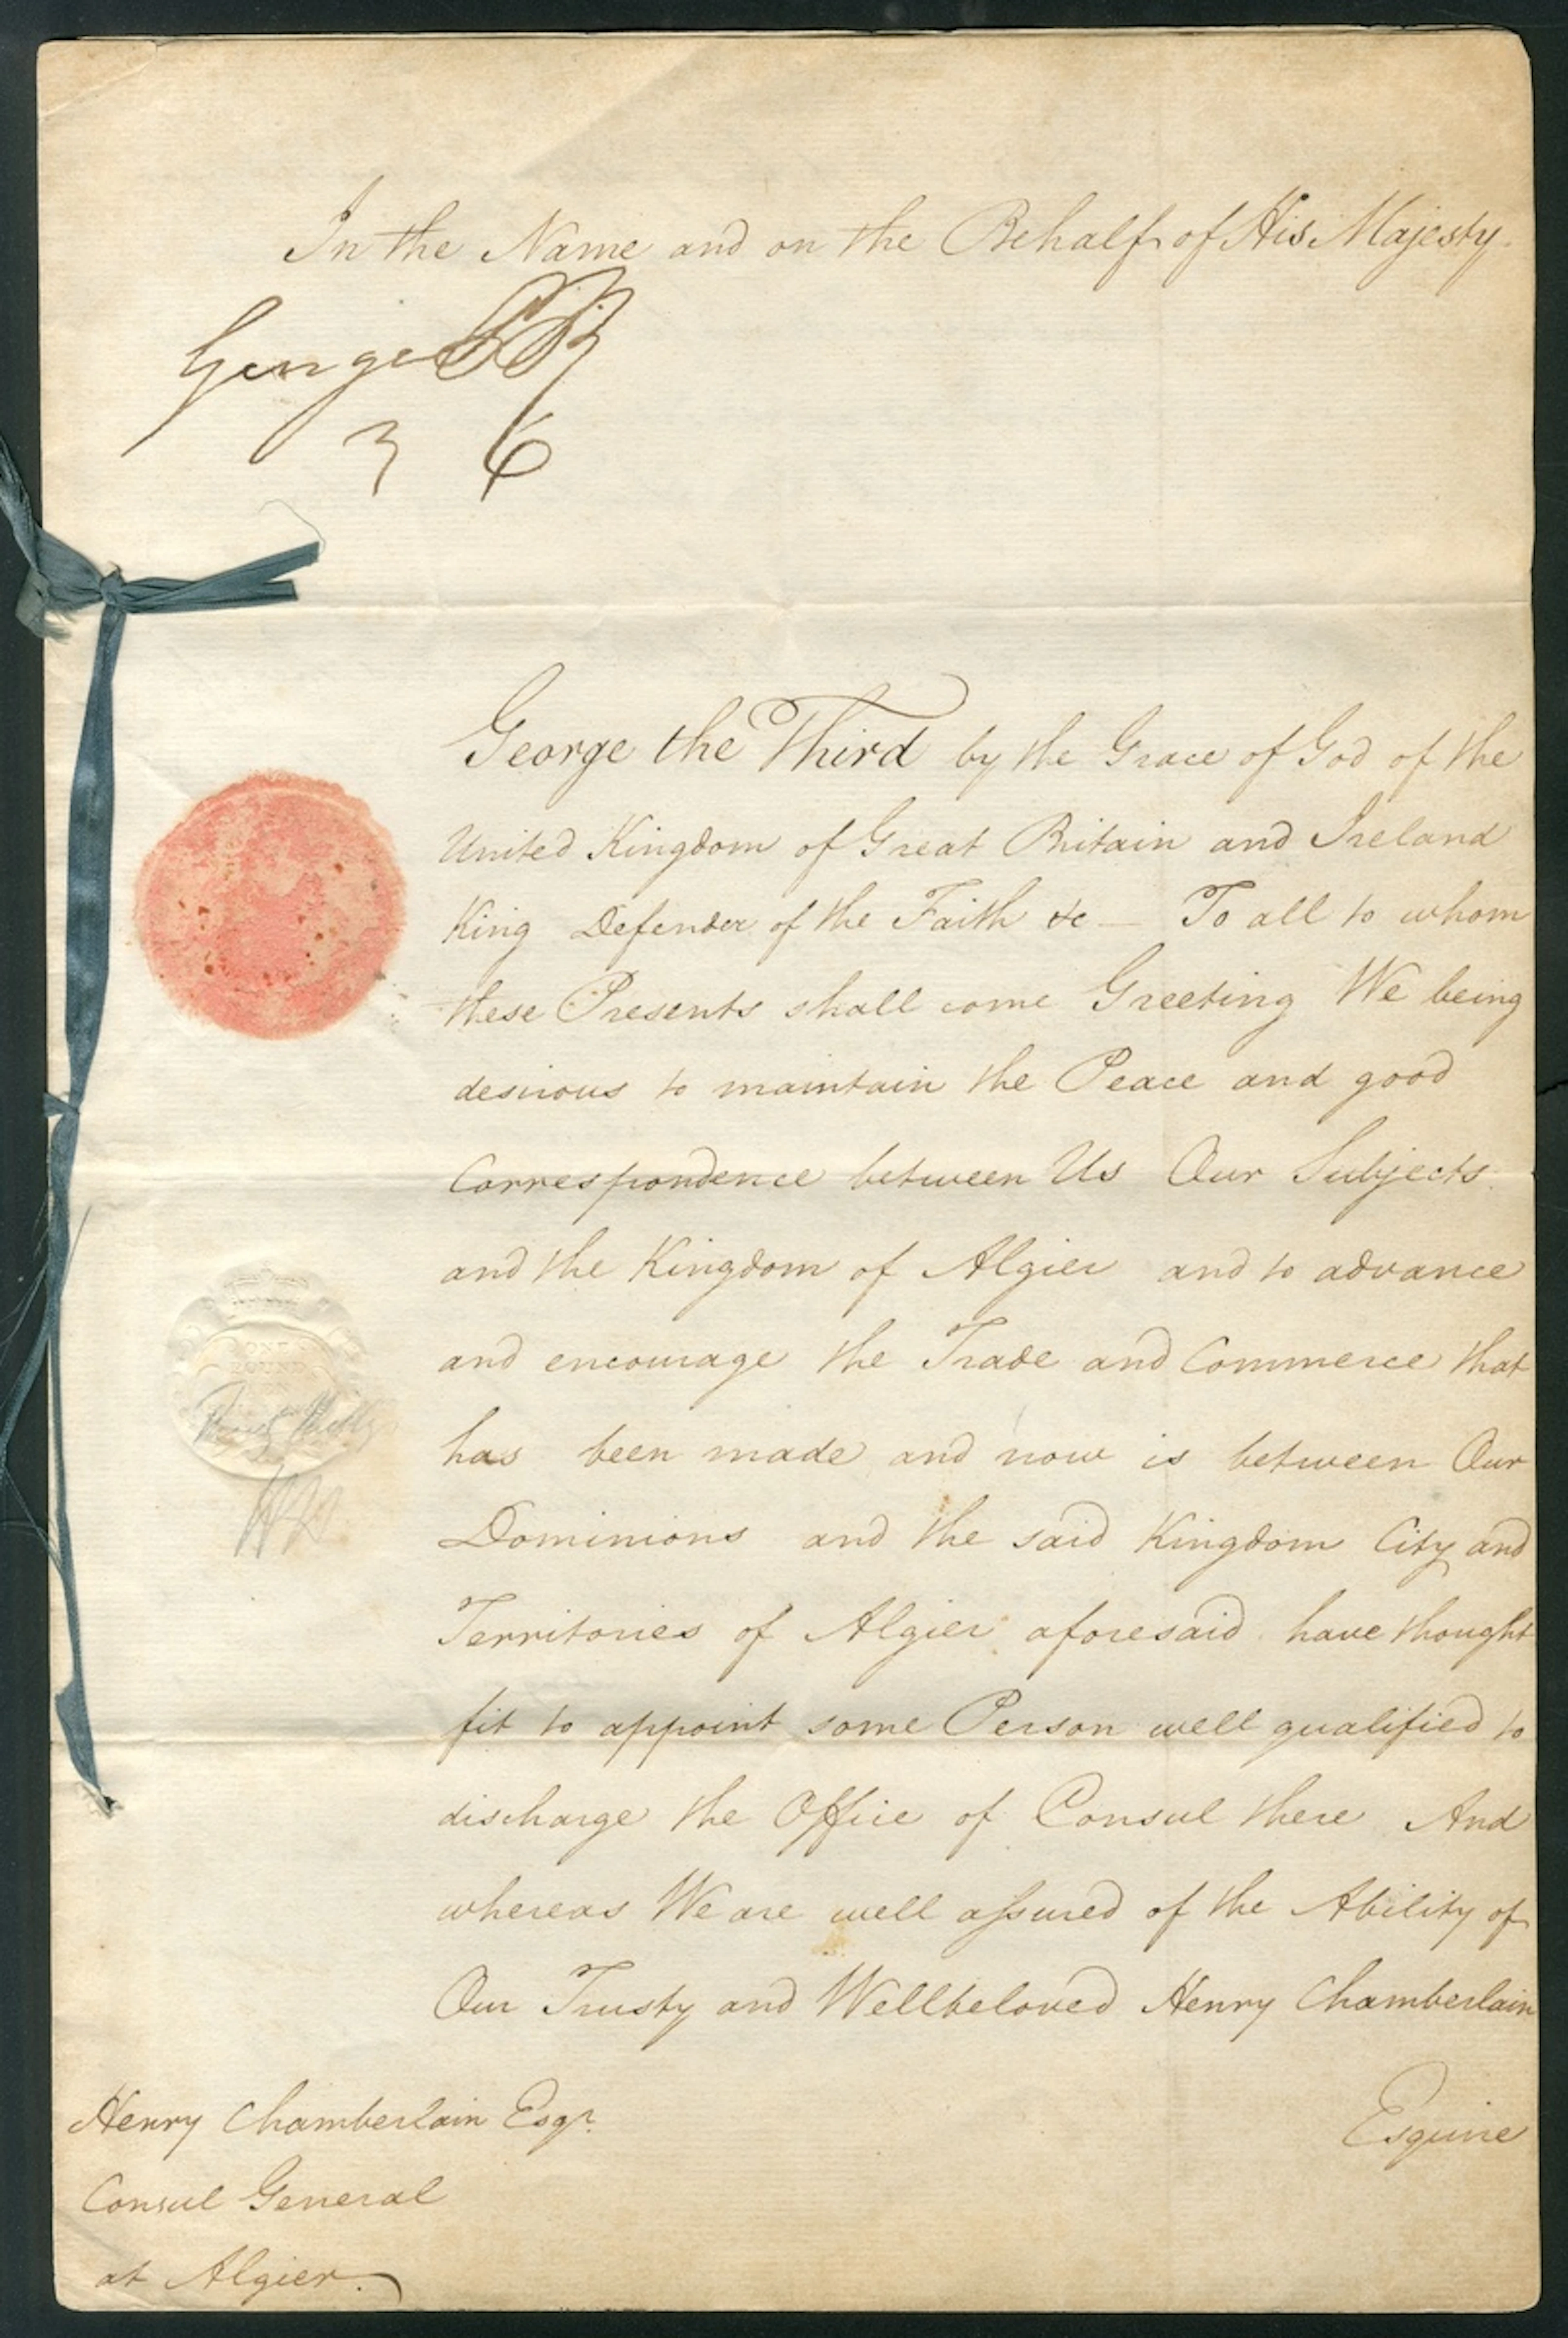 In the Name and on the Behalf of His Majesty
George PR
George the Third by the Grace of God of the
United Kingdom of Great Britain and Ireland
King Defender of the Faith &c — To all to whom
these Presents shall come Greeting We being
desirous to maintain the Peace and good
Correspondence between Us Our Subjects
and the Kingdom of Algier and to advance
and encourage the Trade and Commerce that
has been made and now is between Our
Dominions and the said Kingdom City and
Territories of Algier aforesaid have thought
fit to appoint some Person well qualified to
discharge the Office of Consul there And
whereas We are well assured of the Ability of
Our Trusty and Wellbeloved Henry Chamberlain
Esquire
ONE
POUND
Henry Chamberlain Esqr.
Consul General
at Algier.